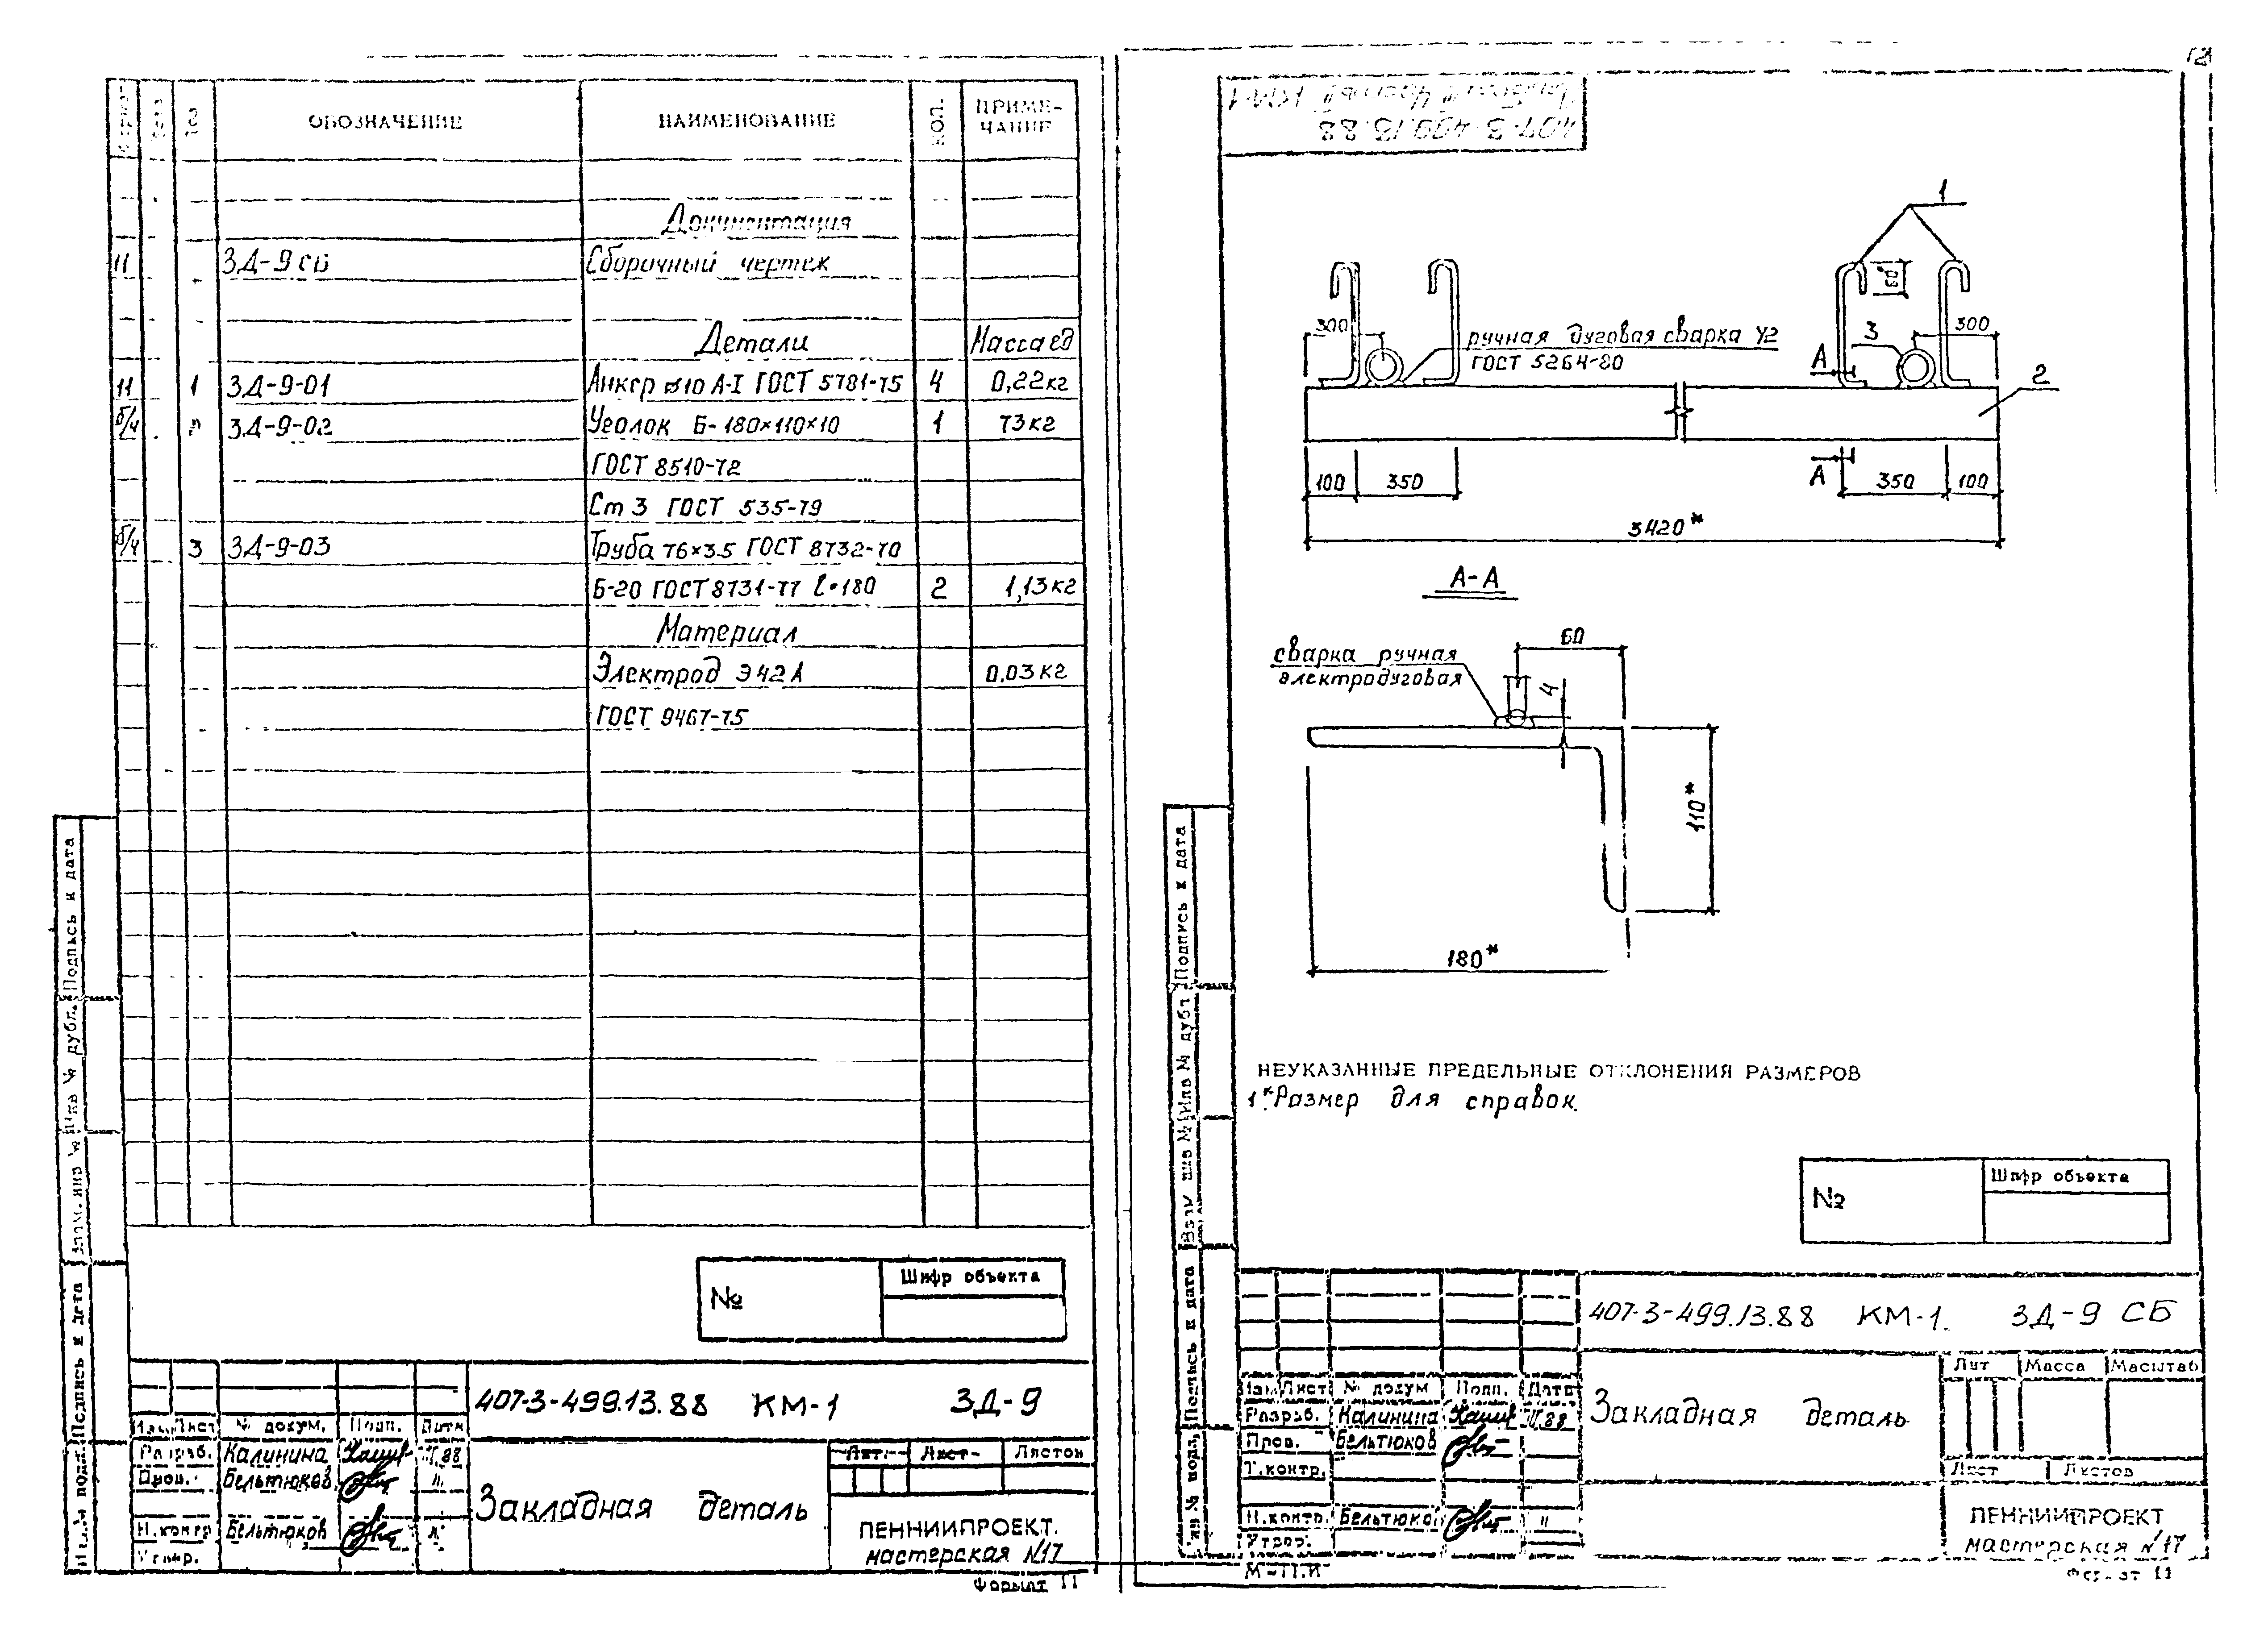 ОБОЗНАЧЕНИЕ НАИМЕНОВАНИЕ КОЛ. ПРИМЕ-
ЧАНИЕ
Документация
11 ЗД-9 СБ Сборочный чертеж
Детали Масса ед
11 1 ЗД-9-01 Анкер ⌀10 А-I ГОСТ 5781-75 4 0,22кг
б/ч 2 ЗД-9-02 Уголок Б-180×110×10 1 73кг
ГОСТ 8510-72
Ст 3 ГОСТ 535-79
б/ч 3 ЗД-9-03 Труба 76×3.5 ГОСТ 8732-70
Б-20 ГОСТ 8731-77 ℓ=180 2 1,13кг
Материал
Электрод Э42А 0,03кг
ГОСТ 9467-75
Подпись и дата
Инв № дубл.
Взам. инв №
Подпись и дата
Инв.№ подл.
№ Шифр объекта
407-3-499.13.88 КМ-1 ЗД-9
Изм Лист № докум. Подп. Дата
Разраб. Калинина 88
Пров. Бельтюков "
Н.контр Бельтюков "
Утвер.
Закладная деталь
Лит. Лист Листов
ЛЕННИИПРОЕКТ.
мастерская №17
Формат 11
407-3-499.13.88
1
300
60*
3
300
ручная дуговая сварка У2
ГОСТ 5264-80
А
2
А
100 350 350 100
3420*
А-А
60
сварка ручная
электродуговая
4
110*
180*
НЕУКАЗАННЫЕ ПРЕДЕЛЬНЫЕ ОТКЛОНЕНИЯ РАЗМЕРОВ
1.* Размер для справок.
Подпись и дата
Инв № дубл
Взам инв №
Подпись и дата
Инв № подл.
№ Шифр объекта
407-3-499.13.88 КМ-1. ЗД-9 СБ
Изм Лист № докум Подп. Дата
Разраб. Калинина 88
Пров. Бельтюков
Т.контр.
Н.контр. Бельтюков "
Утвер.
Закладная деталь
Лит Масса Масштаб
Лист Листов
ЛЕННИИПРОЕКТ
мастерская №17
Формат 11